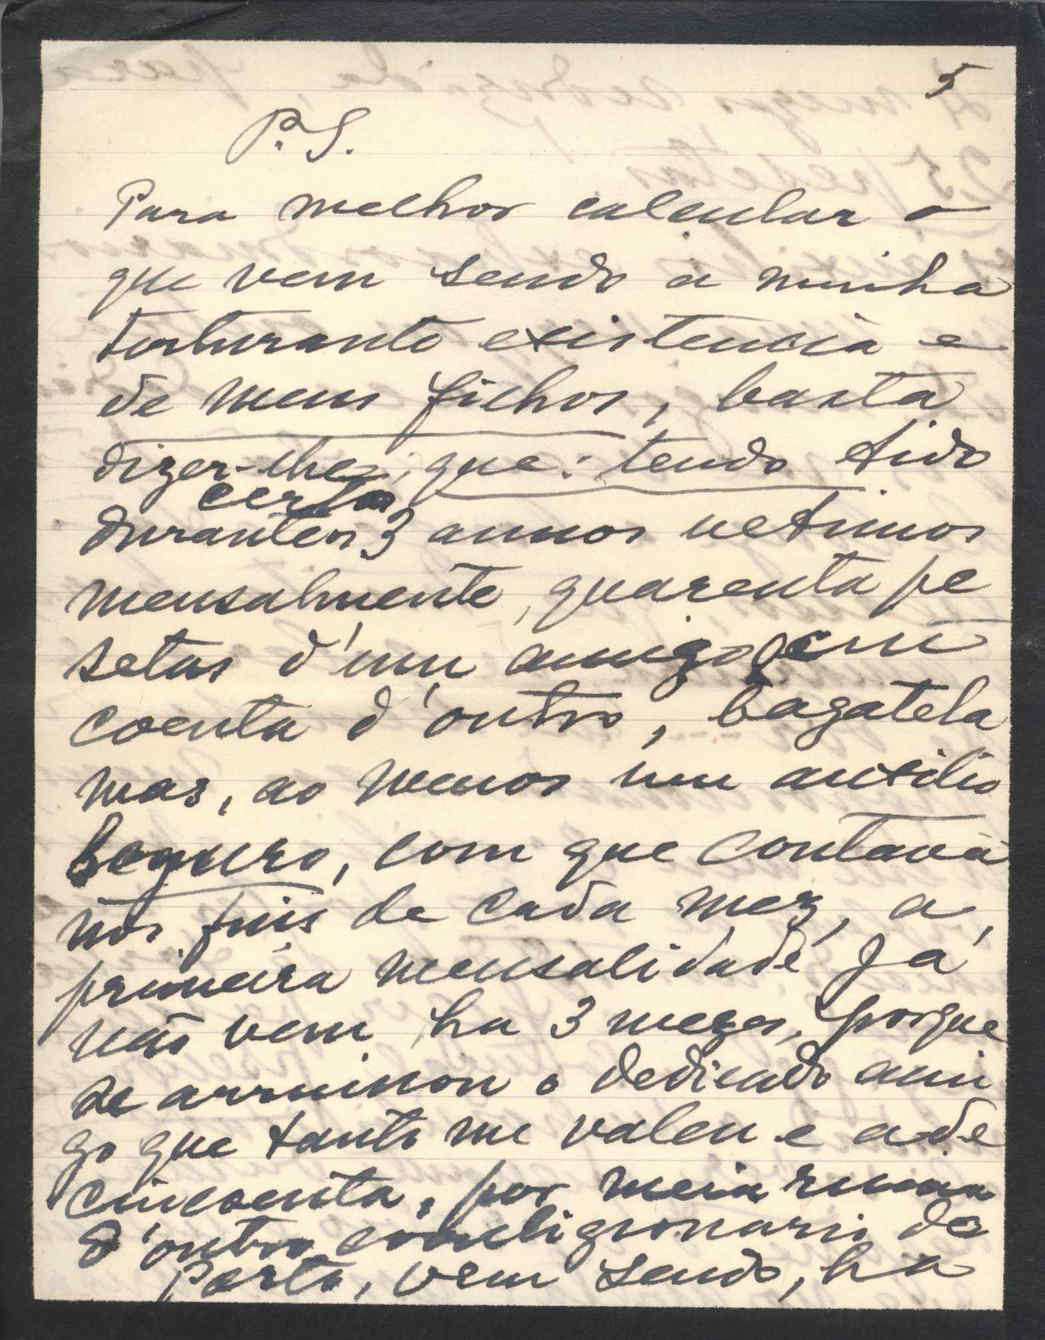 5
P.S.
Para melhor calcular o
que vem sendo a minha
torturante existencia e
de meus filhos, basta
dizer-lhe, que: tendo tido
certo
durante os 3 annos ultimos
mensalmente, quarenta pe
setas d'um amigo, cin
coenta d'outro, bagatela
mas, ao menos um auxilio
seguro, com que contava
nos fins de cada mez, a
primeira mensalidade já
não vem ha 3 mezes, porque
se arruinou o dedicado ami
go que tanto me valeu e a de
cincoenta, por meia ruina
d'outro correligionario do
Porto, vem sendo, ha